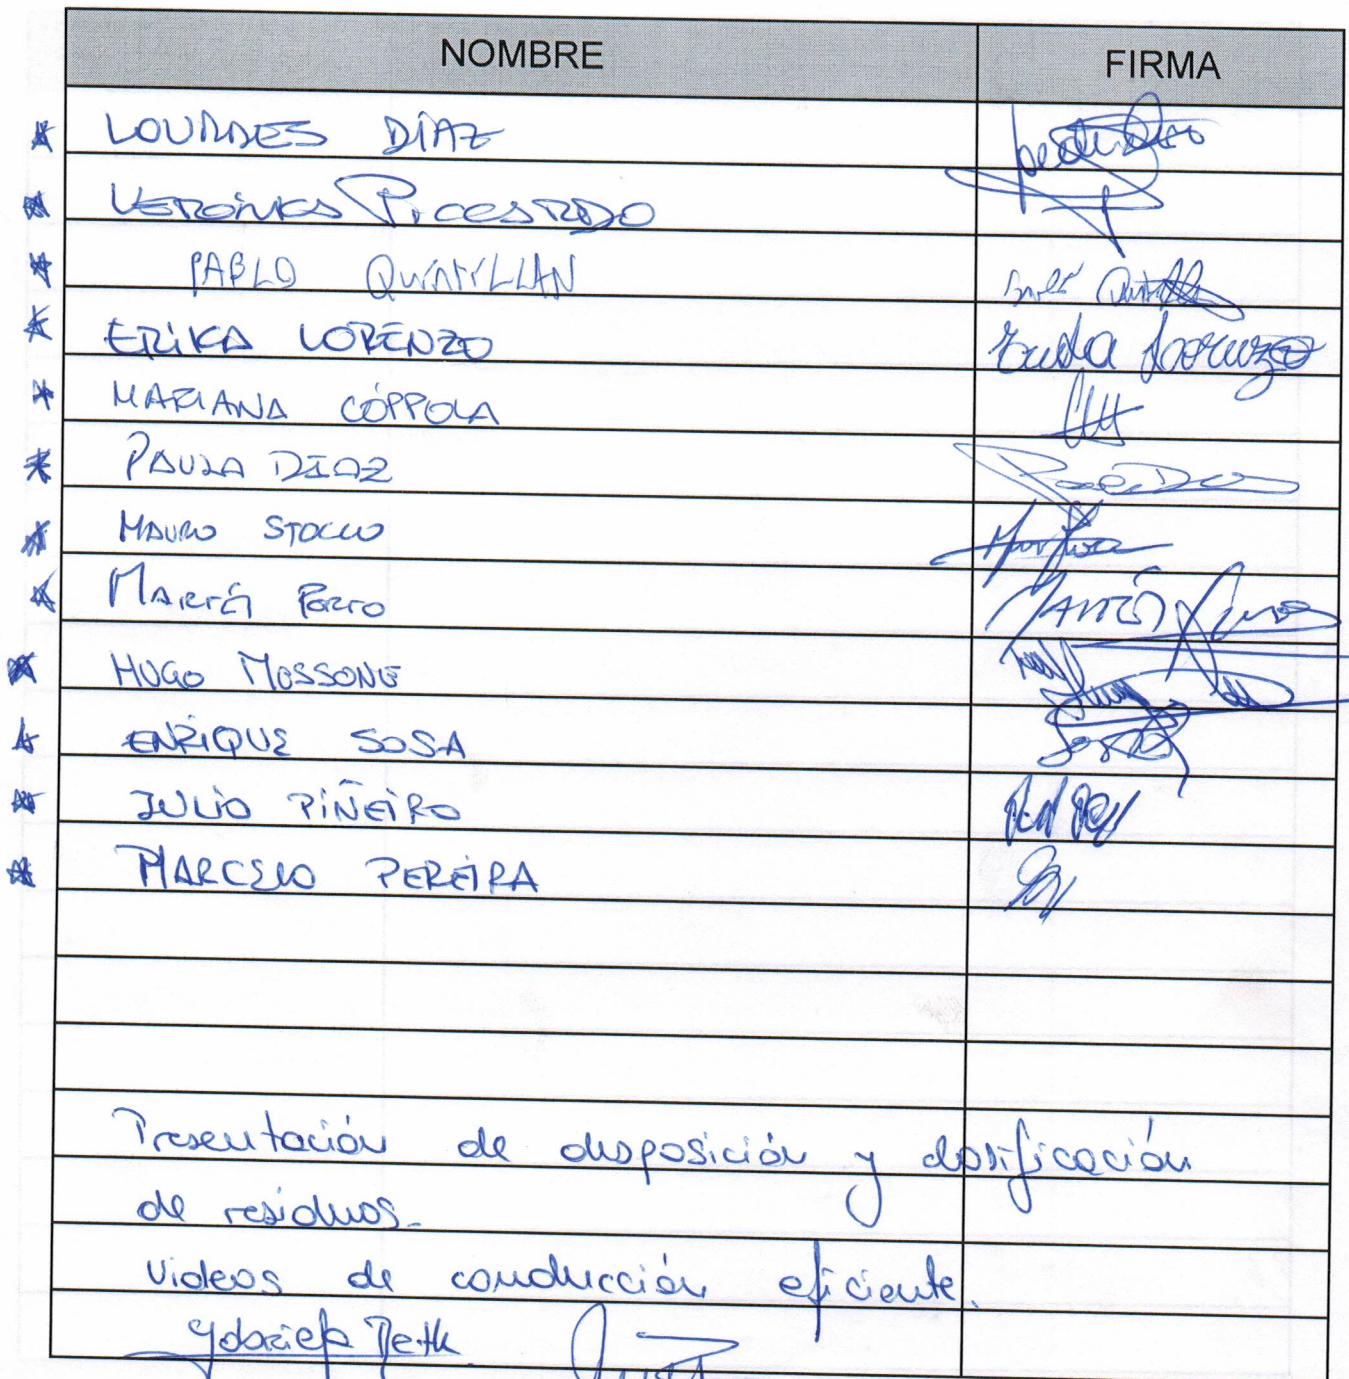 NOMBRE FIRMA
LOURDES DÍAZ
VERÓNICA PICCARDO
PABLO QUINTILLAN
ERIKA LORENZO Erika Lorenzo
MARIANA CÓPPOLA
PAULA DIAZ
MAURO STOCCO
MARTÍN PORTO MARTÍN
HUGO MOSSONE
ENRIQUE SOSA
JULIO PIÑEIRO
MARCELO PEREIRA
Presentación de disposición y clasificación
de residuos.
Videos de conducción eficiente.
Gabriela